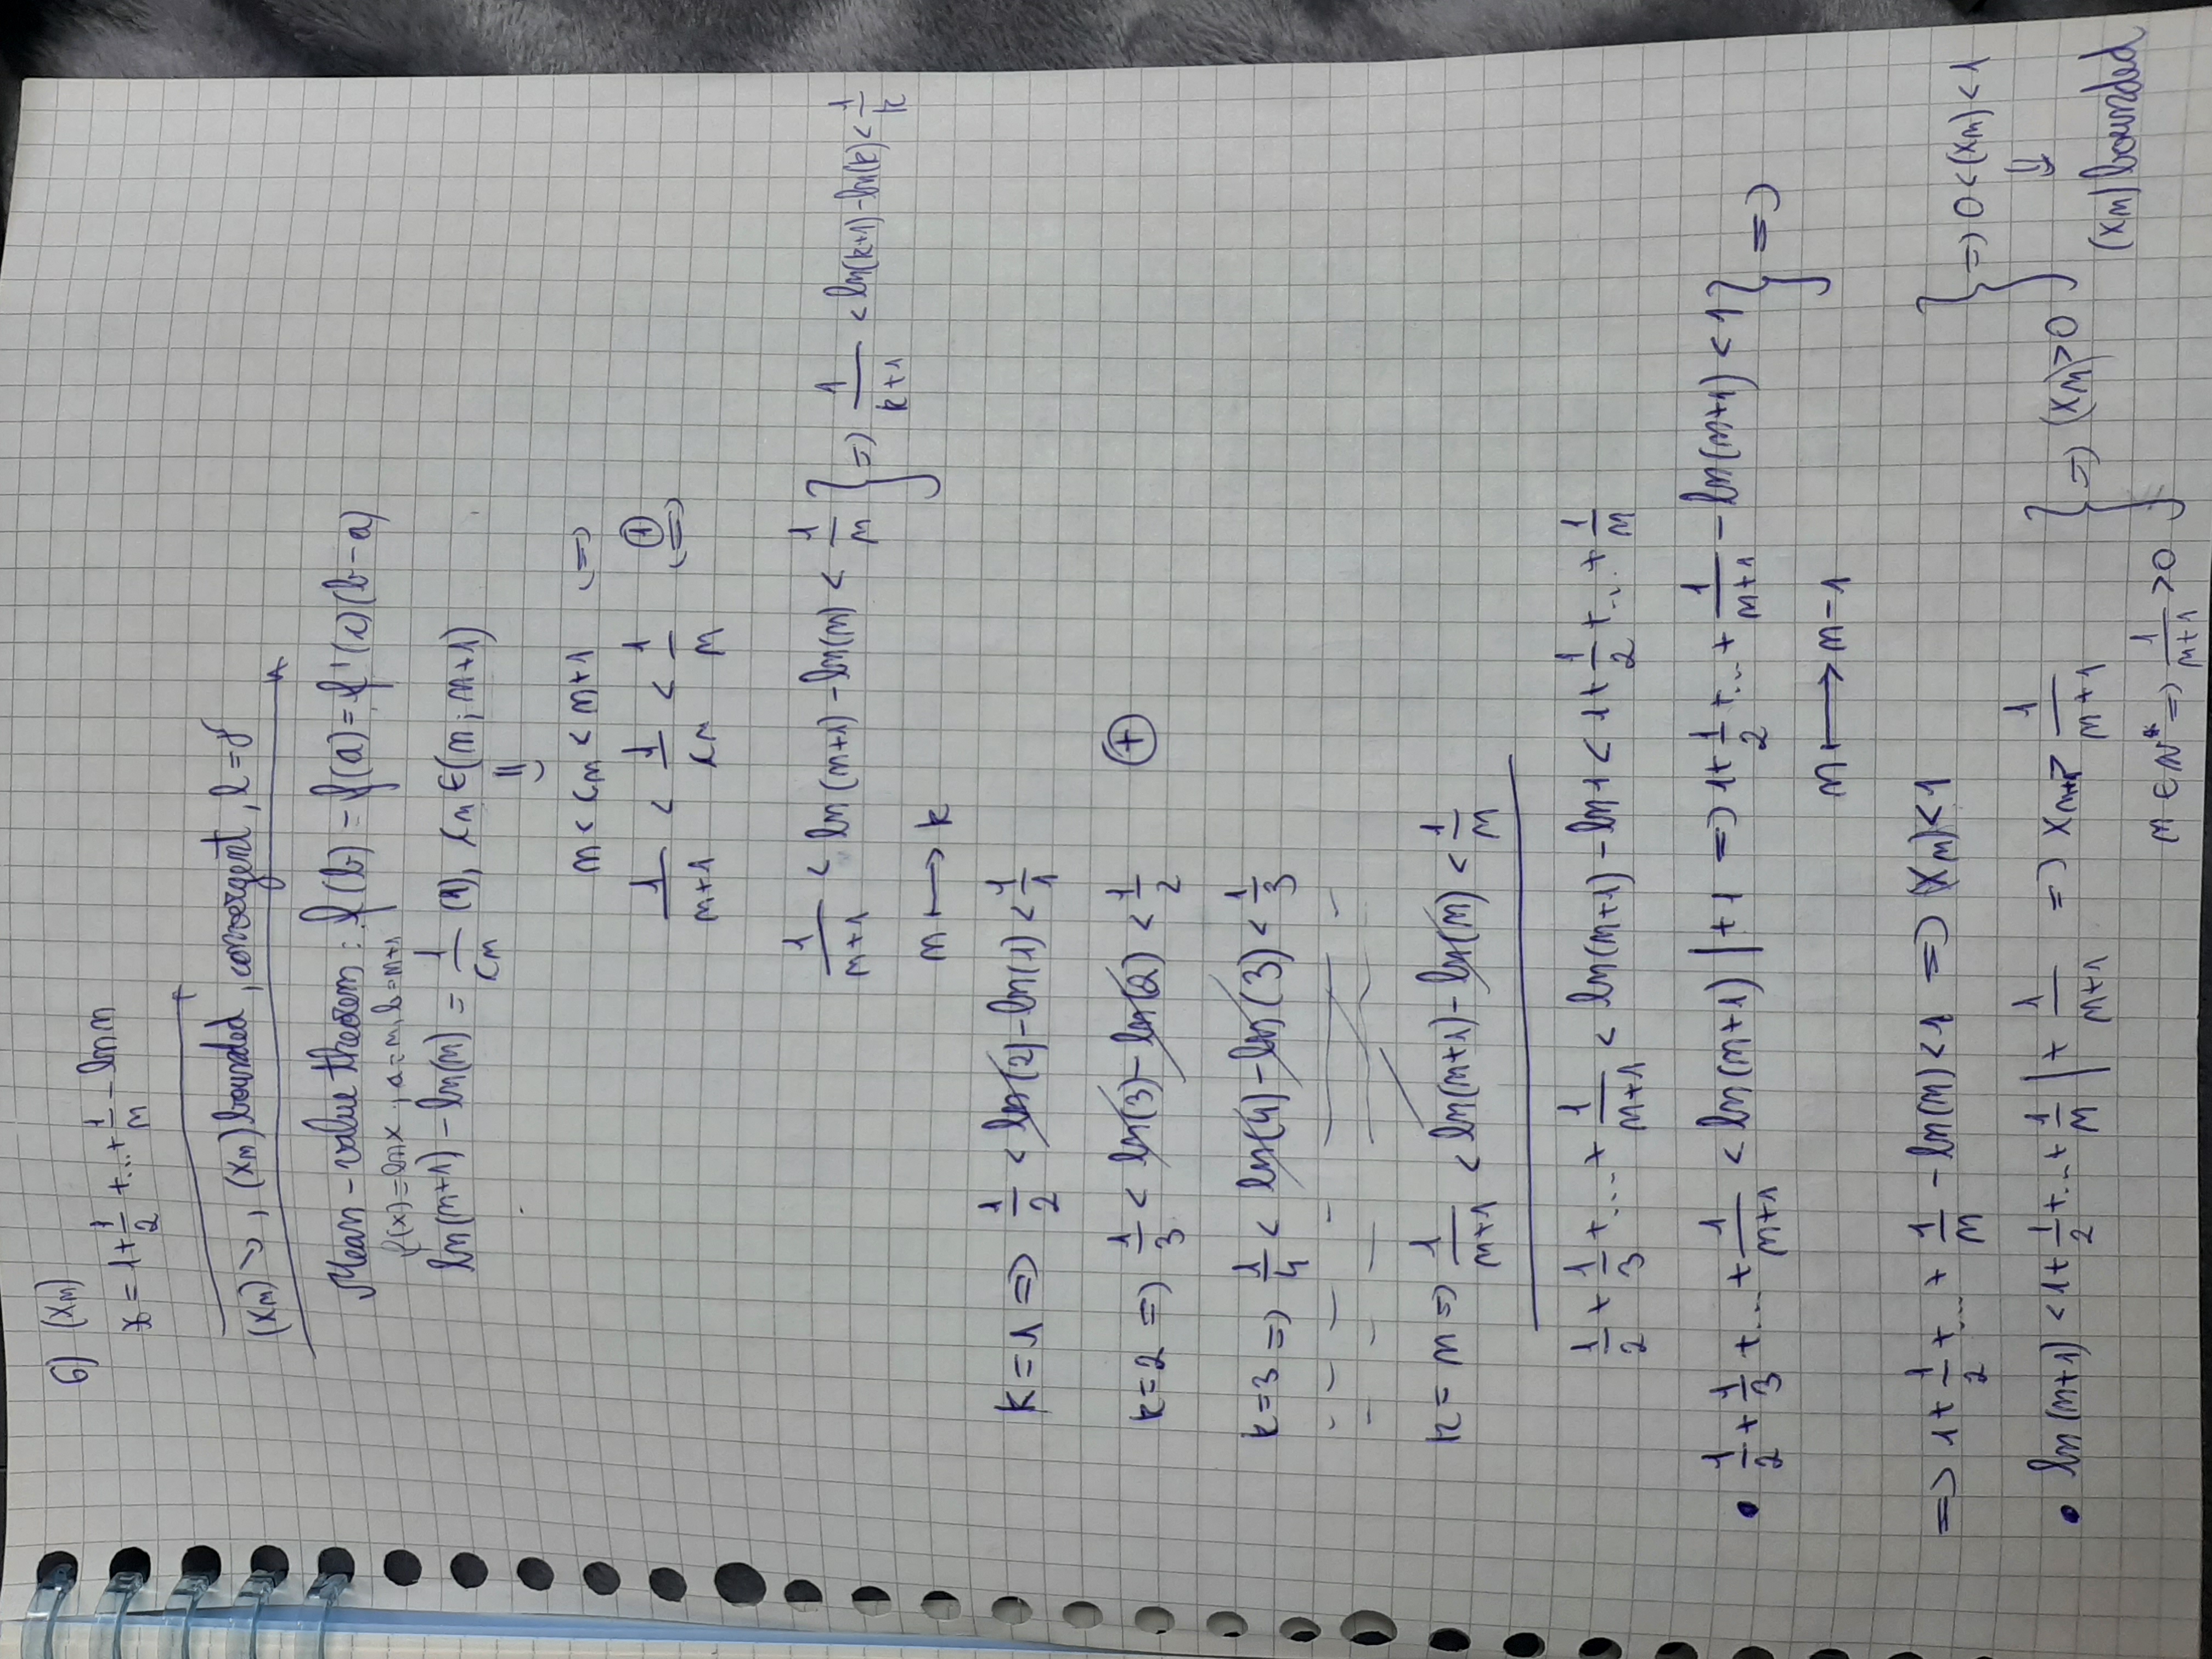 6) (xn)
x = 1 + 1/2 + ... + 1/n - ln n
(xn) ↘, (xn) bounded, convergent, l = γ
Mean-value theorem: f(b) - f(a) = f'(c)(b-a)
f(x) = ln x, a = n, b = n+1
ln(n+1) - ln(n) = 1/cn (1), cn ∈ (n; n+1)
⇓
n < cn < n+1 (=)
1/(n+1) < 1/cn < 1/n (①=)
1/(n+1) < ln(n+1) - ln(n) < 1/n } => 1/(k+1) < ln(k+1) - ln(k) < 1/k
n ↦ k
k = 1 => 1/2 < ln(2) - ln(1) < 1/1
k = 2 => 1/3 < ln(3) - ln(2) < 1/2 ⊕
k = 3 => 1/4 < ln(4) - ln(3) < 1/3
k = n => 1/(n+1) < ln(n+1) - ln(n) < 1/n
1/2 + 1/3 + ... + 1/(n+1) < ln(n+1) - ln 1 < 1 + 1/2 + ... + 1/n
• 1/2 + 1/3 + ... + 1/(n+1) < ln(n+1) | + 1 => 1 + 1/2 + ... + 1/(n+1) - ln(n+1) < 1 } =>
n ↦ n-1
=> 1 + 1/2 + ... + 1/n - ln(n) < 1 => (xn) < 1 } => 0 < (xn) < 1
• ln(n+1) < 1 + 1/2 + ... + 1/n | + 1/(n+1) => xn+1 > 1/(n+1) } => (xn) > 0
⇓
(xn) bounded
n ∈ N* => 1/(n+1) > 0